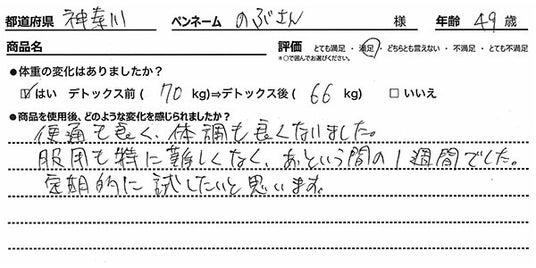 都道府県 神奈川 ペンネーム のぶさん 様 年齢 49 歳
商品名 評価 とても満足・満足・どちらも言えない・不満足・とても不満足
※○で囲んでお選びください。
●体重の変化はありましたか？
☑ はい デトックス前（ 70 kg）⇒デトックス後（ 66 kg） □ いいえ
●商品を使用後、どのような変化を感じられましたか？
便通も良く、体調も良くなりました。
服用も特に難しくなく、あっという間の1週間でした。
定期的に試したいと思います。